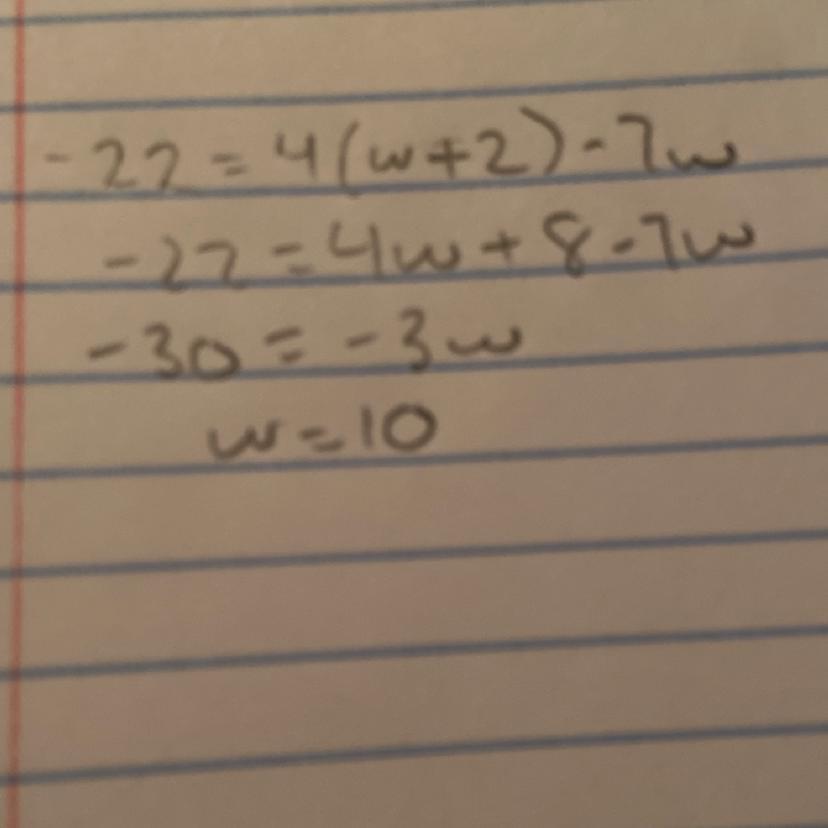 -22 = 4(w+2) - 7w
-22 = 4w + 8 - 7w
-30 = -3w
w = 10